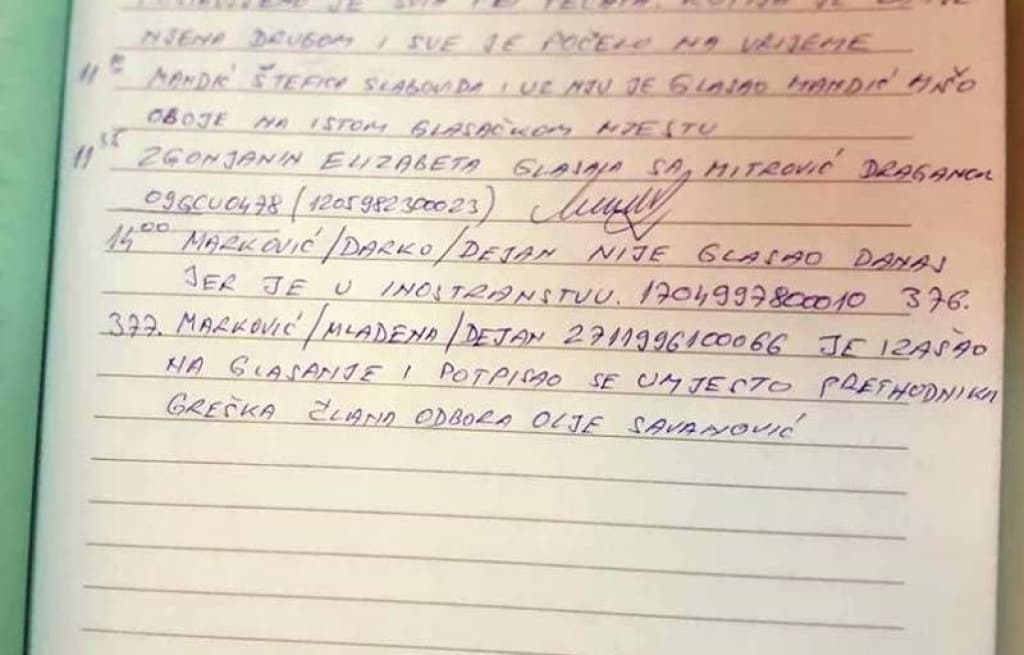 JE SVIH PET PEČATA.
NJENA DRUGOM I SVE JE POČELO NA VRIJEME
11 MANDIĆ ŠTEFICA SLABOVIDA I UZ NJU JE GLASAO MANDIĆ MIŠO
OBOJE NA ISTOM GLASAČKOM MJESTU
11 35 ZGONJANIN ELIZABETA GLASAJA SA MITROVIĆ DRAGANOM
096CU0478 (1205982300023)
14 00 MARKOVIĆ /DARKO/ DEJAN NIJE GLASAO DANAS
JER JE U INOSTRANSTVU. 1704997800010 376.
377. MARKOVIĆ /MLADENA/ DEJAN 2711996100066 JE IZAŠAO
NA GLASANJE I POTPISAO SE UMJESTO PRETHODNIKA
GREŠKA ČLANA ODBORA OLJE SAVANOVIĆ